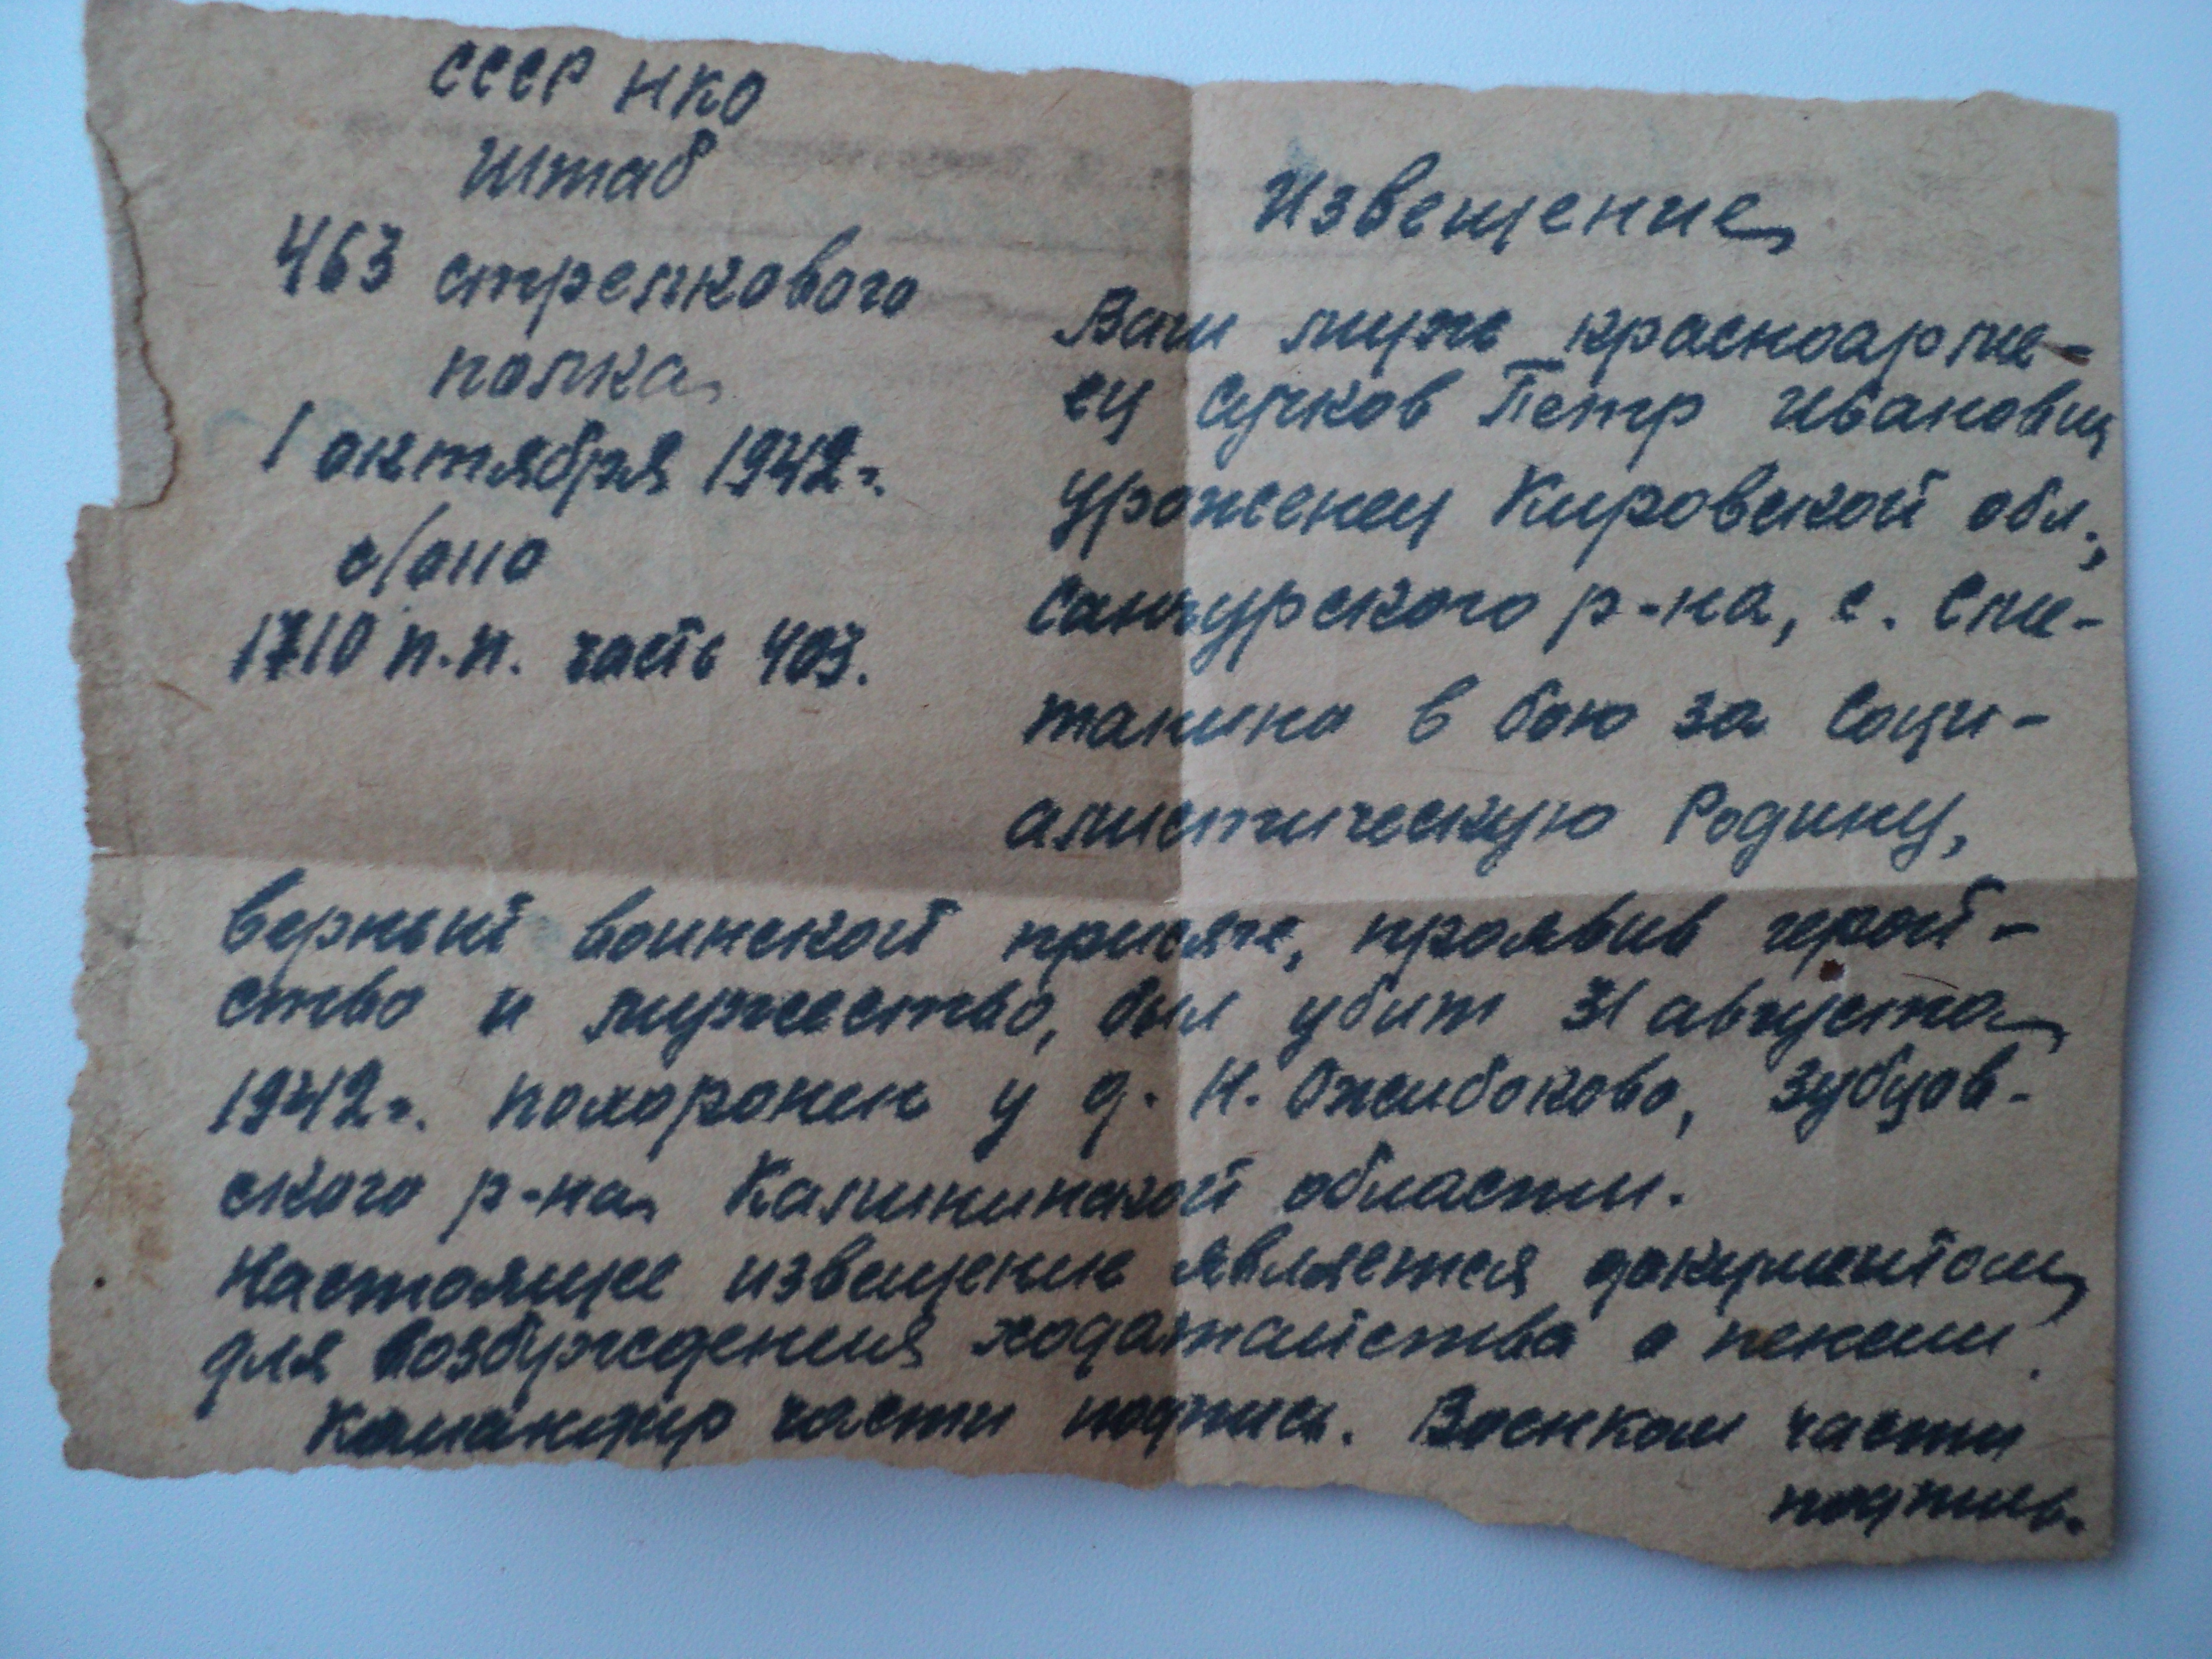 СССР НКО
Штаб
463 стрелкового
полка
1 октября 1942 г.
1710 п.п. часть 403.
Извещение
Ваш муж красноарме-
ец Сучков Петр Иванович
уроженец Кировской обл.,
Санчурского р-на, с.
в бою за соци-
алистическую Родину,
верный воинской присяге, проявив герой-
ство и мужество, был убит 31 августа
1942 г. похоронен у д. Н. Ожибоково, Зубцов-
ского р-на Калининской области.
Настоящее извещение является документом
для возбуждения ходатайства о пенсии.
Командир части подпись. Военком части
подпись.